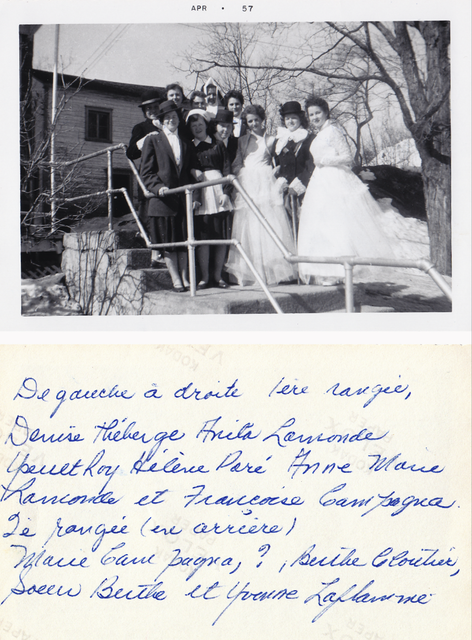 APR • 57
De gauche à droite 1ère rangée,
Denise Théberge Anita Lamonde
Roy Hélène Paré Anne Marie
Lamonde et Francoise Campagna.
2è rangée (en arrière)
Marie Campagna, ?, Berthe Cloutier,
Soeur Berthe et Yvonne Laflamme